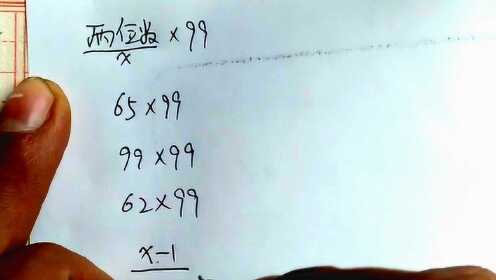 两位数 × 99
x
65 × 99
99 × 99
62 × 99
x-1